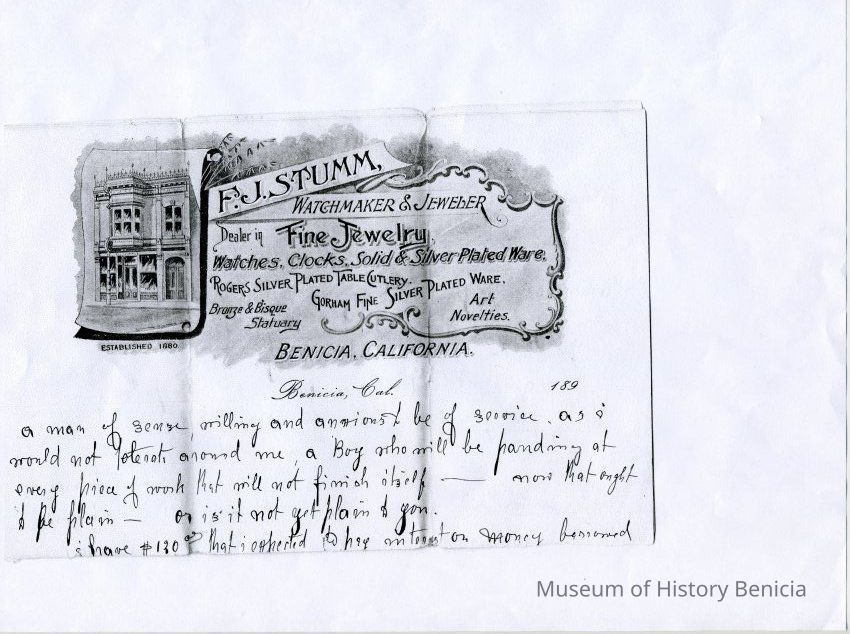 F.J. STUMM,
WATCHMAKER & JEWELER
Dealer in Fine Jewelry,
Watches, Clocks, Solid & Silver Plated Ware.
ROGERS SILVER PLATED TABLE CUTLERY.
GORHAM FINE SILVER PLATED WARE.
Bronze & Bisque
Statuary
Art
Novelties.
ESTABLISHED 1880.
BENICIA, CALIFORNIA.
Benicia, Cal. 189
a man of sense willing and anxious t be of service. as i
would not tolerate around me, a Boy who will be at
every piece of work that will not finish itself — now that ought
t be plain — or is it not yet plain t you.
i have $130 that i expected to pay interest on money borrowed
Museum of History Benicia